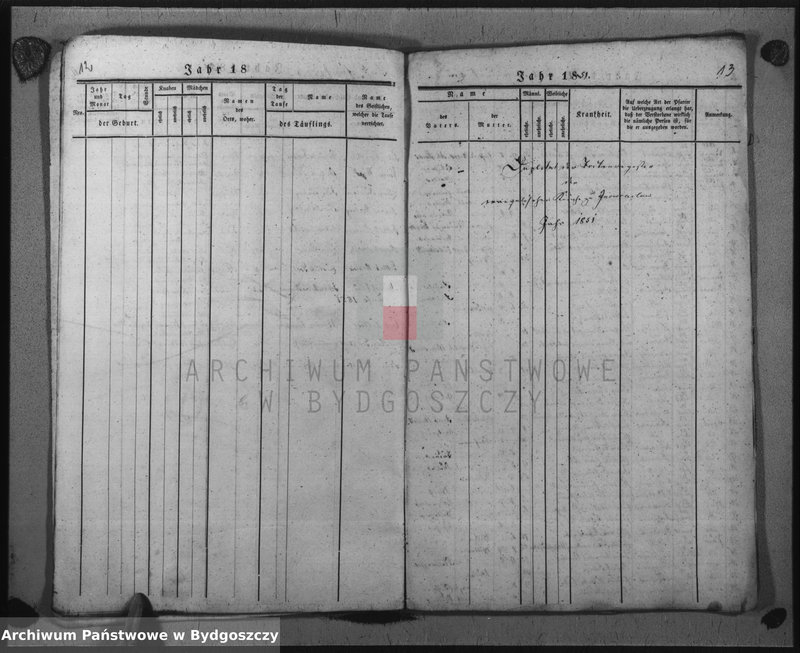 12
Jahr 18
Nro.
Jahr und Monat
Tag
Stunde
der Geburt.
Knaben
ehelich
unehelich
Mädchen
ehelich
unehelich
Namen
des
Orts, woher.
Tag
der
Taufe
Name
des Täuflings.
Name
des Geistlichen,
welcher die Taufe
verrichtet.
13
Jahr 1851.
Name
des
Vaters.
der
Mutter.
Männl.
eheliche.
uneheliche.
Weibliche
eheliche.
uneheliche.
Krankheit.
Auf welche Art der Pfarrer
die Ueberzeugung erlangt hat,
daß der Verstorbene wirklich
die nämliche Person ist, für
die er ausgegeben worden.
Anmerkung.
Duplicat des Totenregister
der
evangelischen Kirche zu Inowraclaw
Jahr 1851
ARCHIWUM PAŃSTWOWE
W BYDGOSZCZY
Archiwum Państwowe w Bydgoszczy